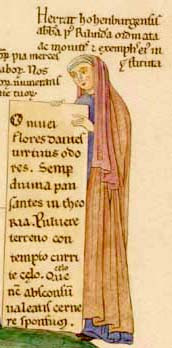 Herrat hohenburgensis
abba p⁹ Rilinda ordinata
ac monitis & exemplis ei⁹ in
stituta
pia merces
labor. Nos
numerans
O nivei
flores dantes
virtutis odo
res. Semp
divina pau
santes in theo
ria. Pulvere
terreno con
tempto curri
te celo. Que
nc̄ absconsū
valeatis cerne
re sponsum.